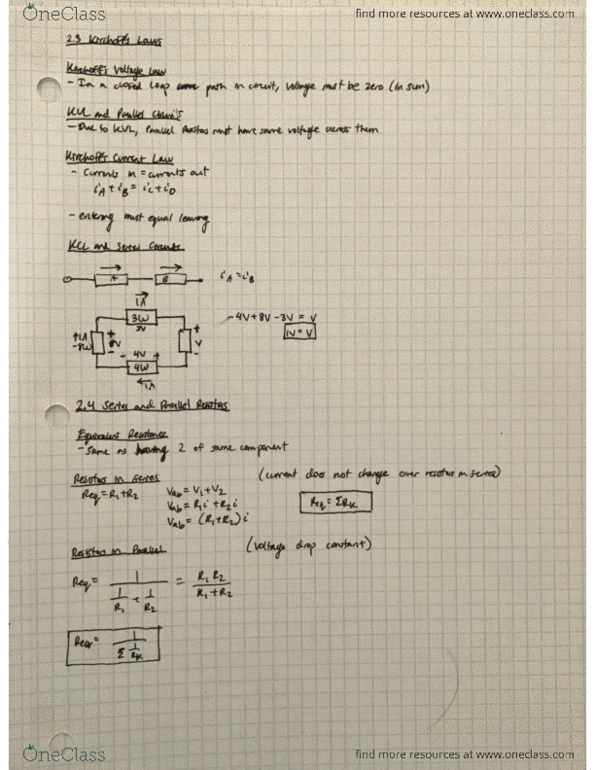 OneClass find more resources at www.oneclass.com
2.3 Kirchoff's Laws
Kirchoff's Voltage Law
- In a closed loop path in circuit, voltage must be zero (in sum)
KVL and Parallel Circuits
- Due to KVL, Parallel Resistors must have same voltage across them
Kirchoff's Current Law
- currents in = currents out
iA + iB = iC + iD
- entering must equal leaving
KCL and Series Circuits
A B iA = iB
1A
3W
3V
-4V+8V-3V = V
1V = V
↑1A
-8W
+
8V
-
+
V
-
- 4V +
4W
←1A
2.4 Series and Parallel Resistors
Equivalent Resistance
- Same as having 2 of same component
Resistors in Series (current does not change over resistor in series)
Req = R1+R2 Vab = V1+V2
Vab = R1i + R2i
Vab = (R1+R2)i
Req = ΣRK
Resistors in Parallel (voltage drop constant)
Req = 1/(1/R1 + 1/R2) = R1R2/(R1+R2)
Req = 1/(Σ 1/RK)
OneClass find more resources at www.oneclass.com